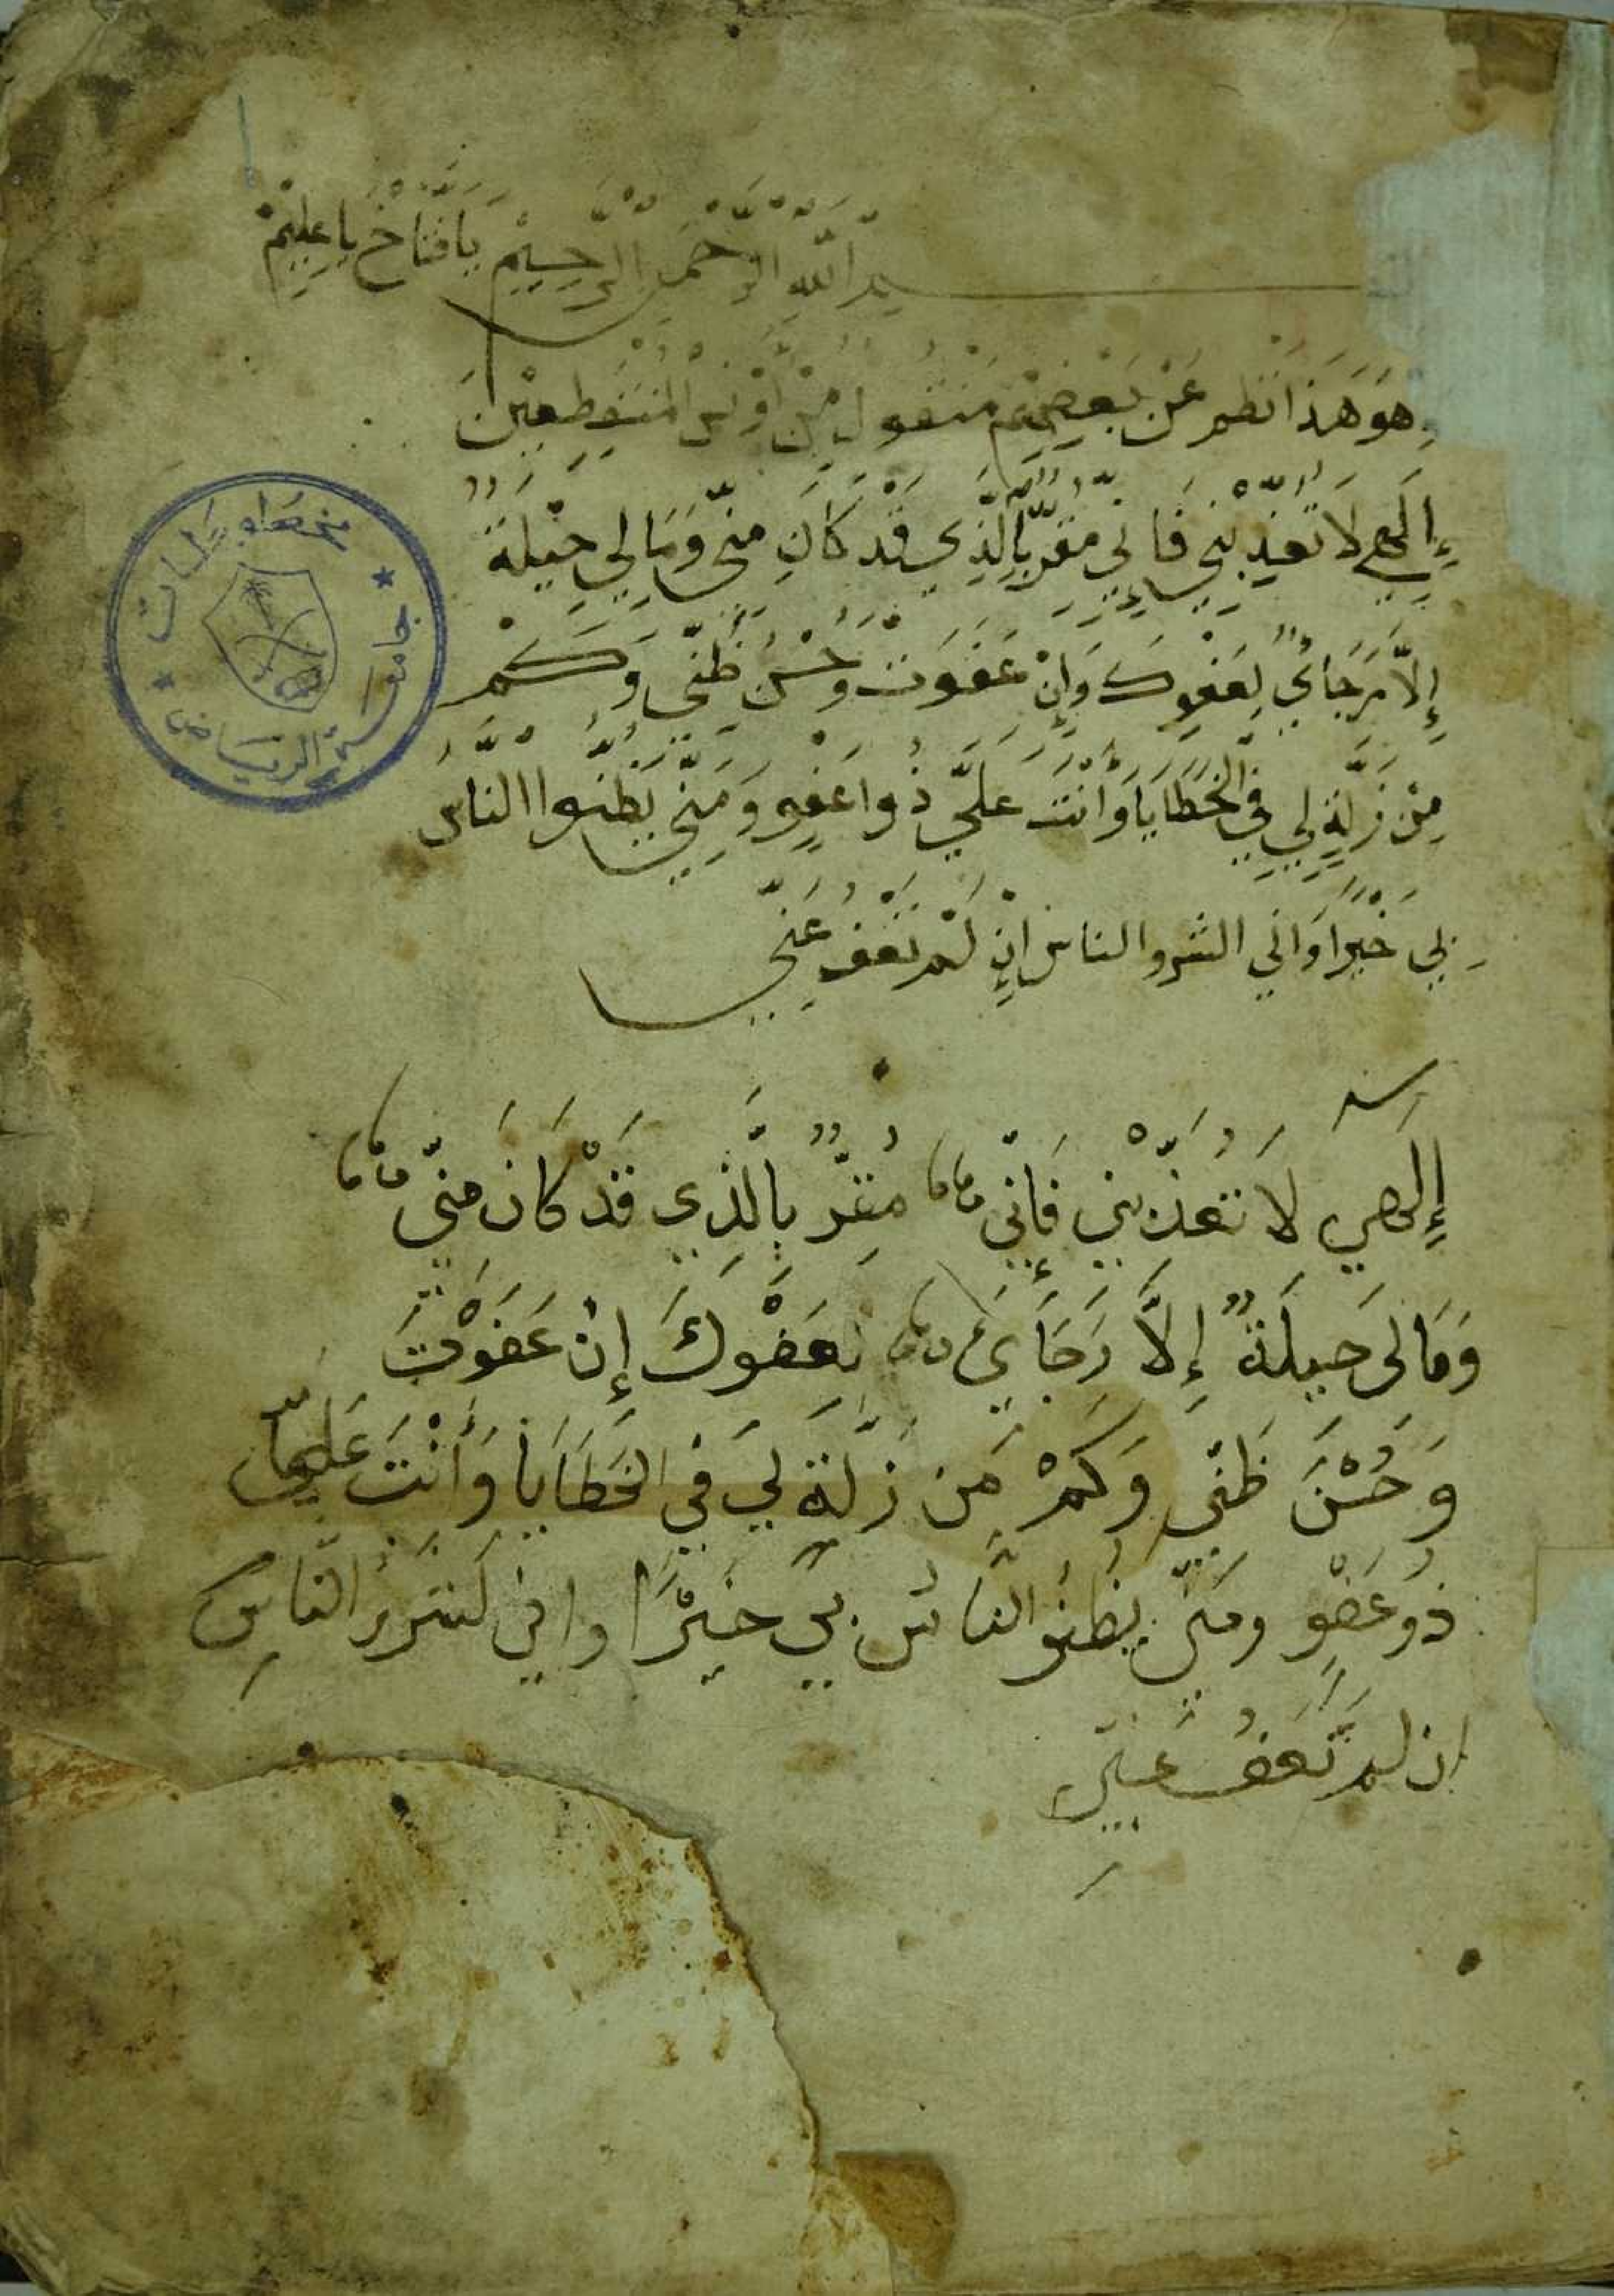 بسم الله الرحمن الرحيم يا فتاح يا عليم
وهو هذا نظم عن بعضهم منقول من المنقطعين
إِلَهِي لَا تُعَذِّبْنِي فَانِّي مُقِرٌّ بِالَّذِي قَدْ كَانَ مِنِّي وَمَا لِي حِيْلَةٌ
إِلَّا رَجَائِي لِعَفْوِكَ وَإِنْ عَفَوْتَ وَحُسْنُ ظَنِّي وَكَمْ
مِنْ زَلَّةٍ لِي فِي الْخَطَايَا وَأَنْتَ عَلَيَّ ذُوا عَفْوٍ وَمَنِّي يَظُنُّوا النَّاسُ
بِي خَيْرًا وَانِّي الشر والناس اِنْ لَمْ تَعْفُ عَنِّي
إِلَهِي لَا تُعَذِّبْنِي فَإِنِّي مُقِرٌّ بِالَّذِي قَدْ كَانَ مِنِّي
وَمَا لِي حِيلَةٌ إِلَّا رَجَايَ لِعَفْوِكَ إِنْ عَفَوْتَ
وَحُسْنَ ظَنِّي وَكَمْ مِنْ زَلَّةٍ لِي فِي الْخَطَايَا وَأَنْتَ عَلَيَّ
ذُو عَفْوٍ ومنّي يظنو النَّاسُ بِي خَيْرًا واني لَشَرُّ النَّاسِ
ان لم تَعْفُ عَنِّي
جامعة الرياض
مخطوطات
قسم